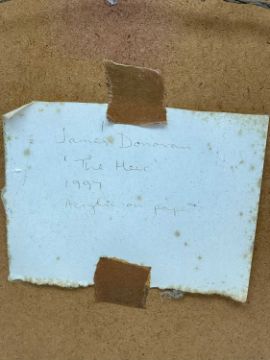 James Donovan
'The Heir'
1997
Acrylic on paper